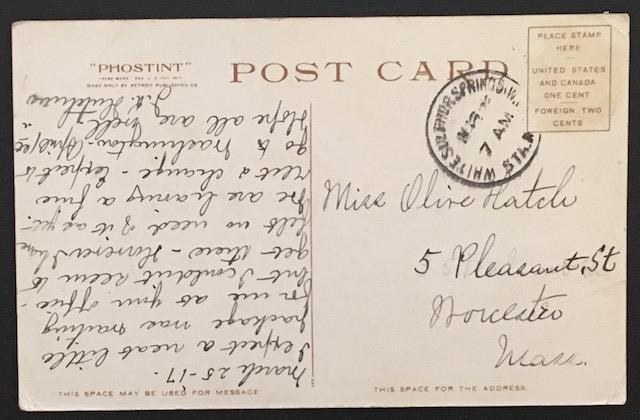 "PHOSTINT"
TRADE MARK REG. U.S. PAT. OFF.
MADE ONLY BY DETROIT PUBLISHING CO.
POST CARD
PLACE STAMP
HERE
UNITED STATES
AND CANADA
ONE CENT
FOREIGN, TWO
CENTS
WHITE SULPHUR SPRINGS, W.
MAR
7 AM
STA.
March 25-17.
I expect a neat little
package was waiting
for me at your office -
but I couldn't seem to
get there - However I have
felt no need of it as yet.
We are having a fine
rest & change - Expect to
go to Washington - April
Hope all are well
Hutchins
Miss Olive Hatch
5 Pleasant, St
Worcester
Mass.
THIS SPACE MAY BE USED FOR MESSAGE.
THIS SPACE FOR THE ADDRESS.